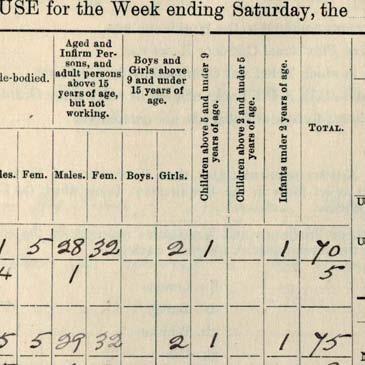 USE for the Week ending Saturday, the
le-bodied.
Aged and
Infirm Per-
sons, and
adult persons
above 15
years of age,
but not
working.
Boys and
Girls above
9 and under
15 years of
age.
Children above 5 and under 9
years of age.
Children above 2 and under 5
years of age.
Infants under 2 years of age.
TOTAL.
les. Fem. Males. Fem. Boys. Girls.
1 5 28 32 2 1 1 70
4 1 5
5 5 29 32 2 1 1 75